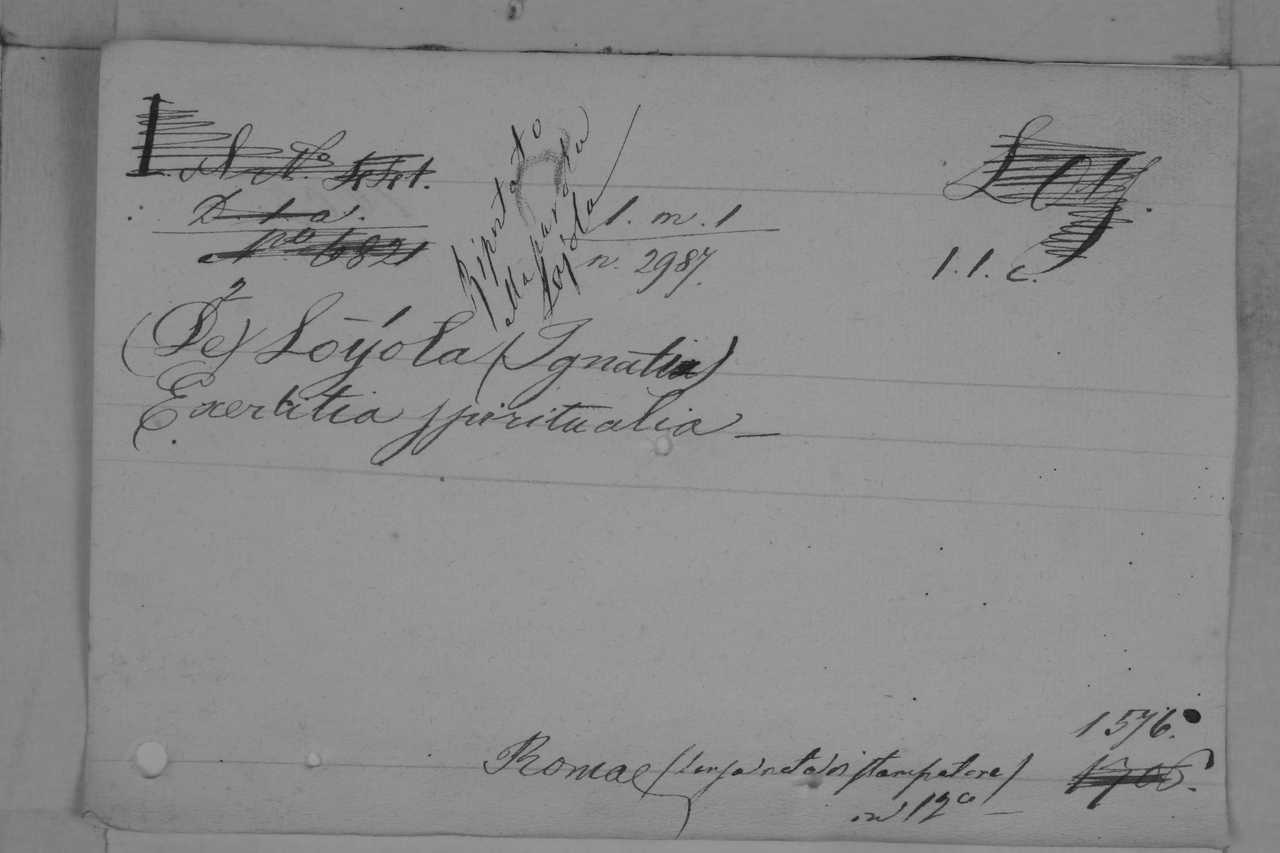 Loy.
Riportato
alla parola
Loyola
1. m. 1
n. 2987.
1. 1. c.
(De) Loyola (Ignatii)
Exercitia spiritualia —
1576.
Romae (senza nota di stampatore)
in 12º —